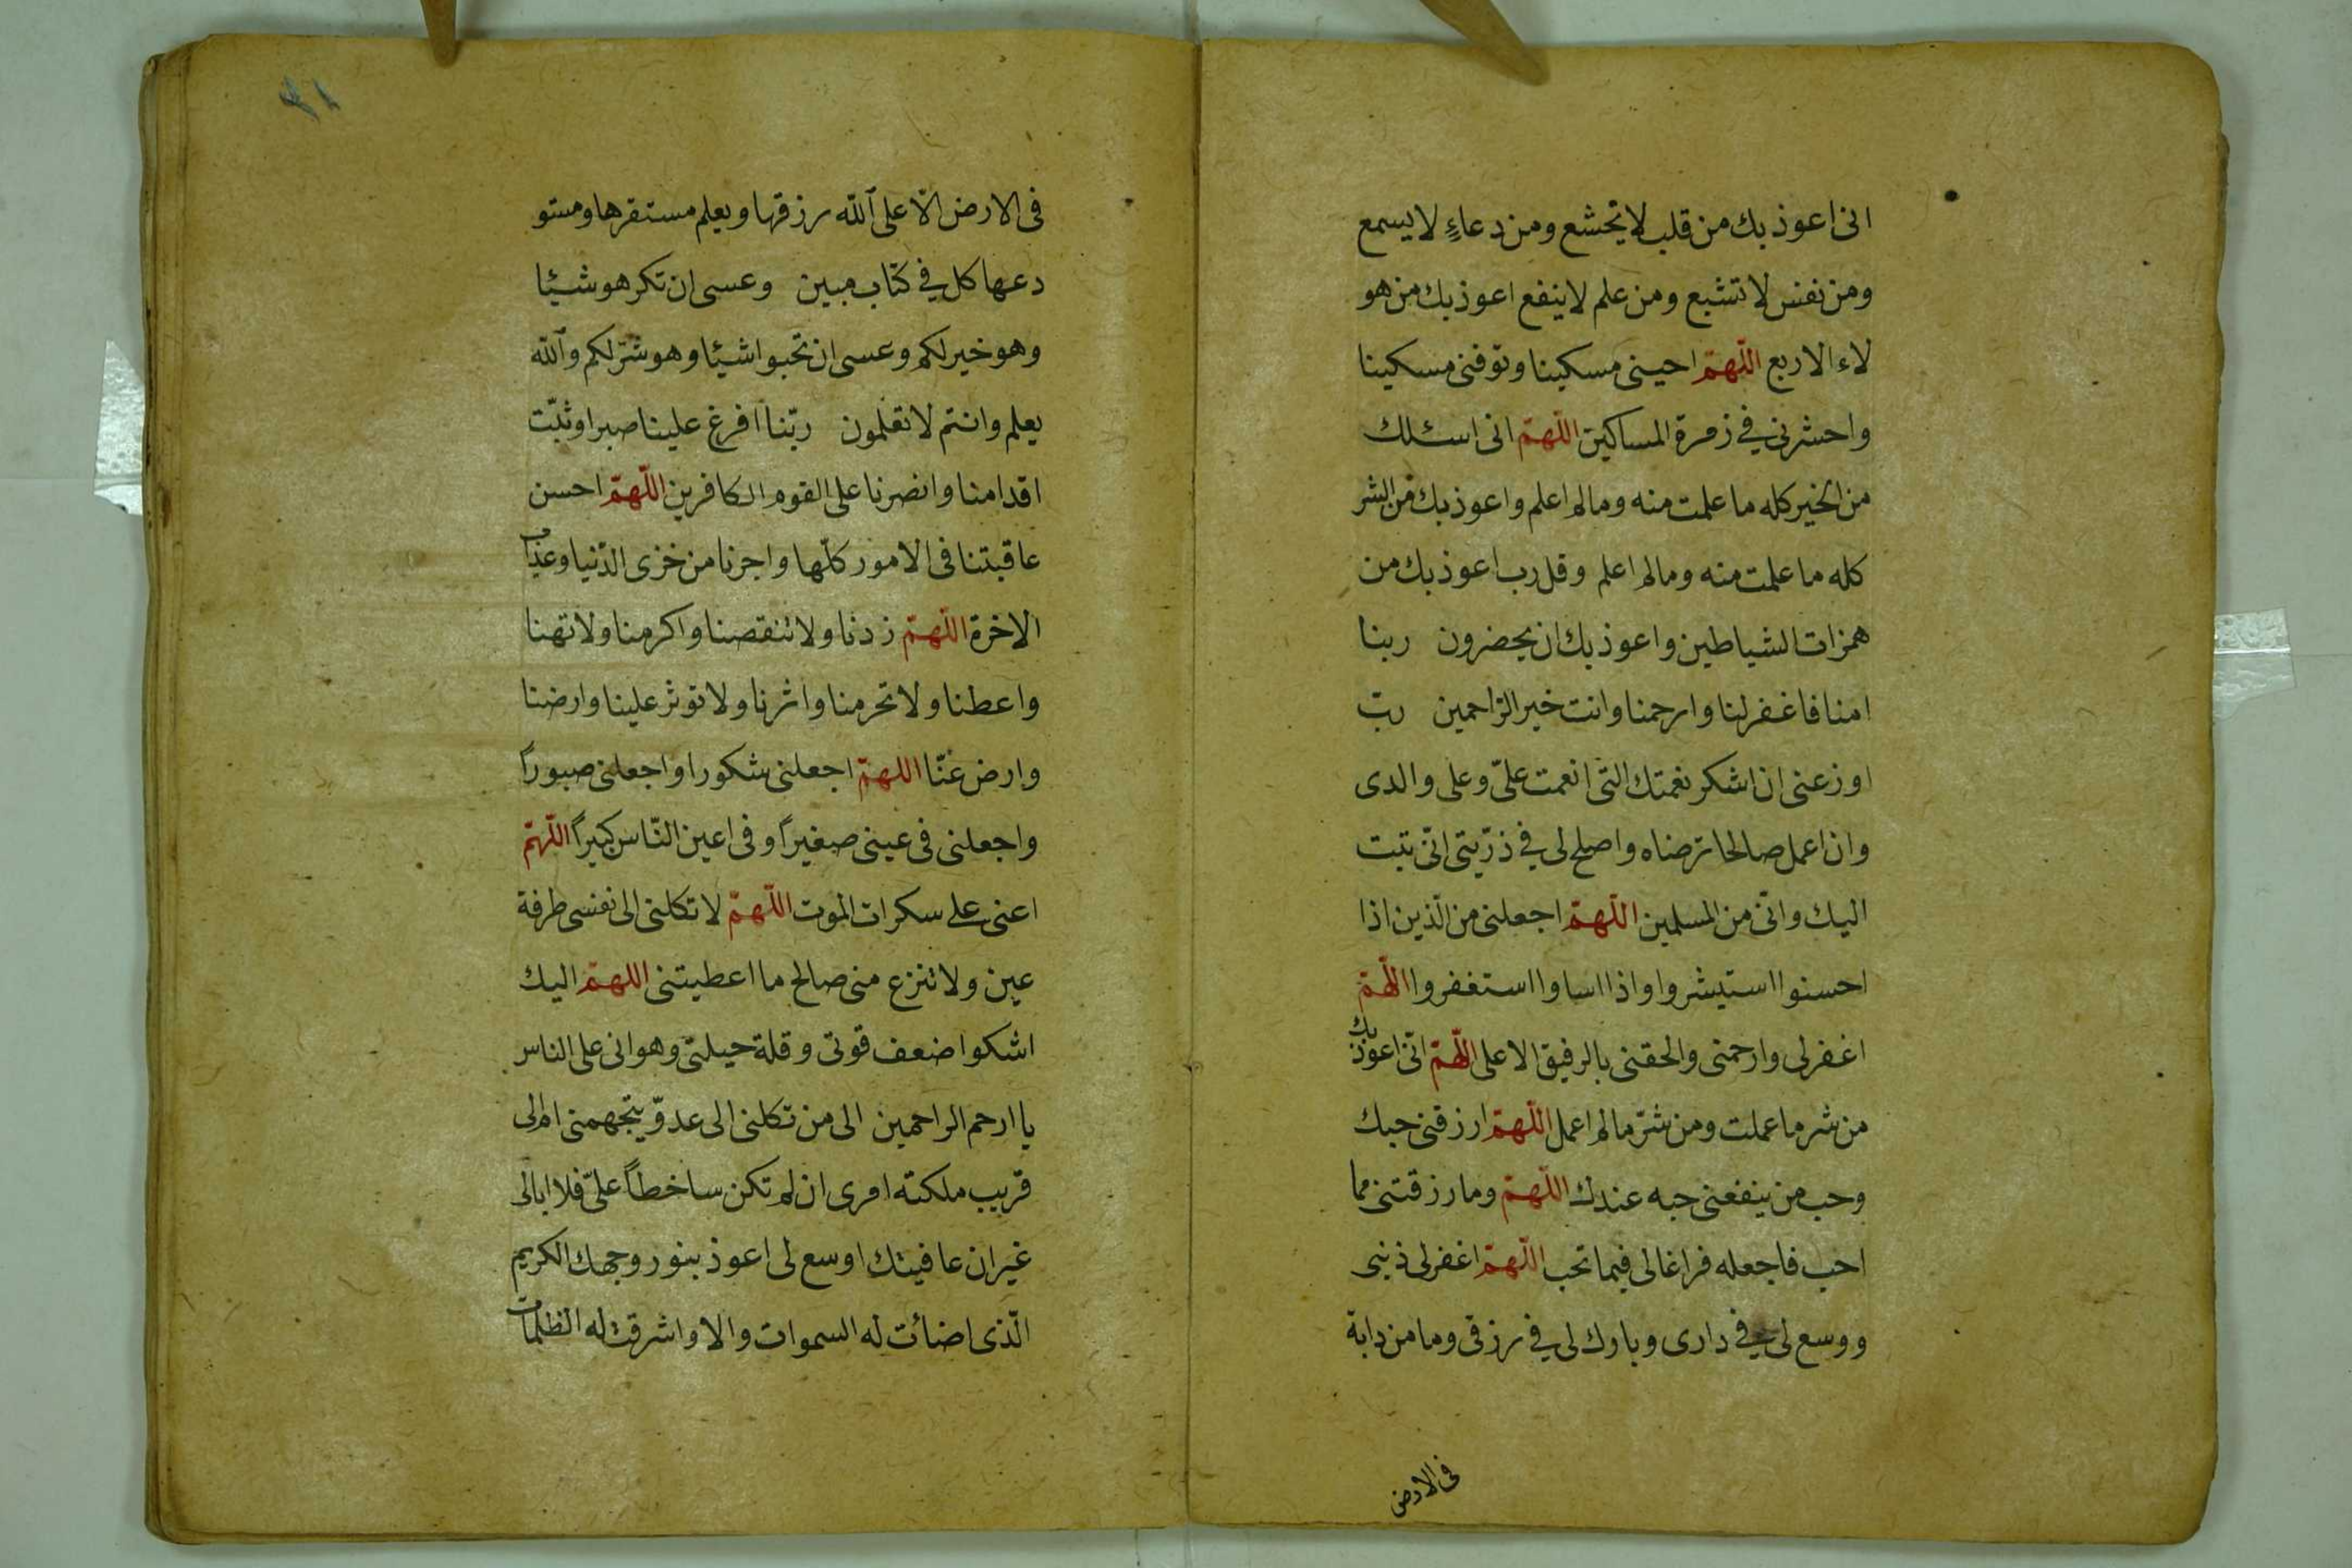 انى اعوذ بك من قلب لا يخشع ومن دعاءٍ لا يسمع
ومن نفس لا تشبع ومن علم لا ينفع اعوذ بك من هو
لاء الاربع اللّهمّ احينى مسكينا وتوفنى مسكينا
واحشرنى في زمرة المساكين اللّهمّ انى اسئلك
من الخير كله ما علمت منه ومالم اعلم واعوذ بك من الشر
كله ما علمت منه ومالم اعلم وقل رب اعوذ بك من
همزات الشياطين واعوذ بك ان يحضرون ربنا
امنا فاغفر لنا وارحمنا وانت خير الرّاحمين ربّ
اوزعنى ان اشكر نعمتك التى انعمت علىّ وعلى والدى
وان اعمل صالحا ترضاه واصلح لى في ذرّيتى انّى تبت
اليك وانّى من المسلمين اللّهمّ اجعلنى من الّذين اذا
احسنوا استبشروا واذا اساوا استغفروا اللّهمّ
اغفرلى وارحمنى والحقنى بالرفيق الاعلى اللّهمّ انّى اعوذ بك
من شر ما عملت ومن شرّ مالم اعمل اللّهمّ ارزقنى حبك
وحب من ينفعنى حبه عندك اللّهمّ وما رزقتنى مما
احب فاجعله فراغا لى فيما تحب اللّهمّ اغفرلى ذنبى
ووسع لى في دارى وبارك لى في رزقى وما من دابة
فى الارض
٣١
فى الارض الّا على الله رزقها ويعلم مستقرها ومستو
دعها كل في كتاب مبين وعسى ان تكرهو شيئا
وهو خير لكم وعسى ان تحبوا شيئا وهو شرّ لكم والله
يعلم وانتم لا تعلمون ربّنا افرغ علينا صبرا وثبّت
اقدامنا وانصرنا على القوم الكافرين اللّهمّ احسن
عاقبتنا فى الامور كلّها واجرنا من خزى الدّنيا وعذاب
الاخرة اللّهمّ زدنا ولا تنقصنا واكرمنا ولا تهنا
واعطنا ولا تحرمنا واثرنا ولا توثر علينا وارضنا
وارض عنّا اللهمّ اجعلنى شكورا واجعلنى صبوراً
واجعلنى فى عينى صغيراً وفى اعين النّاس كبيراً اللّهمّ
اعنى على سكرات الموت اللّهمّ لا تكلنى الى نفسى طرفة
عين ولا تنزع منى صالح ما اعطيتنى اللهمّ اليك
اشكوا ضعف قوتى وقلة حيلتى وهوانى على الناس
يا ارحم الراحمين الى من تكلنى الى عدوّ يتجهمنى ام الى
قريب ملكته امرى ان لم تكن ساخطاً علىّ فلا ابالى
غير ان عافيتك اوسع لى اعوذ بنور وجهك الكريم
الّذى اضائت له السموات والا واشرقت له الظلمات